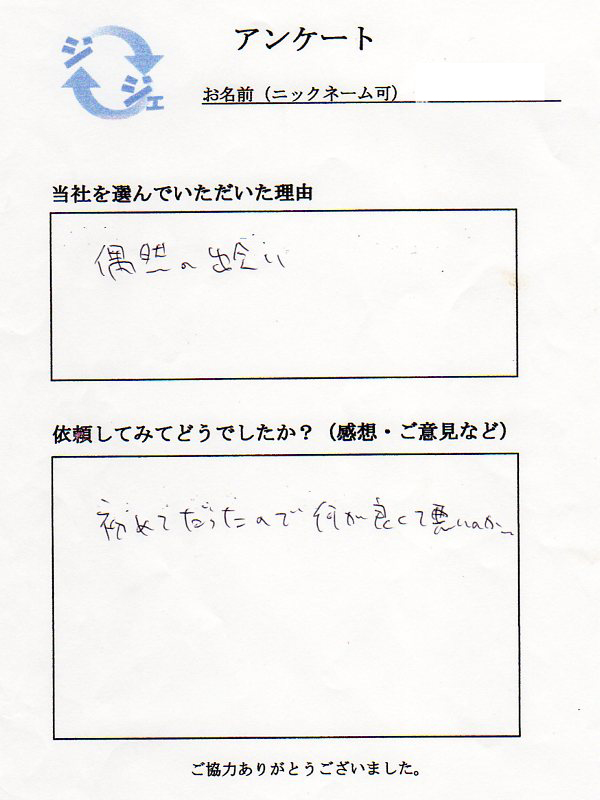 ジジェ
アンケート
お名前（ニックネーム可）
当社を選んでいただいた理由
偶然の出会い
依頼してみてどうでしたか？（感想・ご意見など）
初めてだったので何が良くて悪いのか〜
ご協力ありがとうございました。